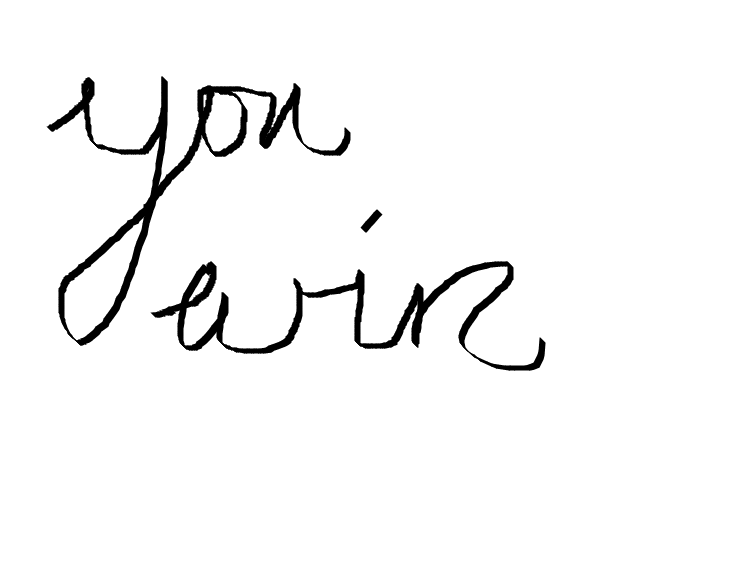 you
win